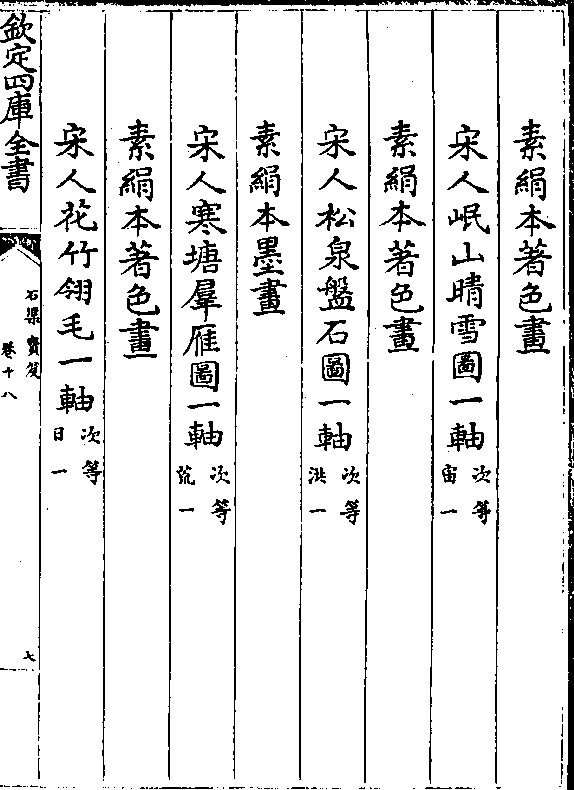 素絹本著色畫
宋人岷山晴雪圖一軸 次等宙一
素絹本著色畫
宋人松泉盤石圖一軸 次等洪一
素絹本墨畫
宋人寒塘羣雁圖一軸 次等荒一
素絹本著色畫
宋人花竹翎毛一軸 次等日一
欽定四庫全書
石渠寶笈
卷十八
七